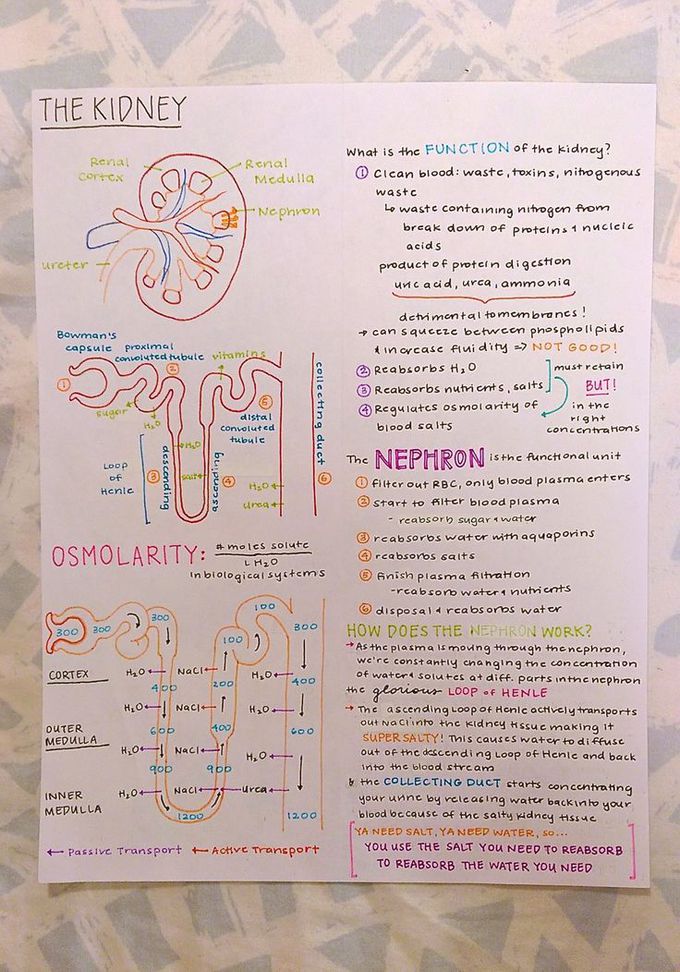 THE KIDNEY
Renal
Cortex
Renal
Medulla
Nephron
ureter
Bowman's
capsule
proximal
convoluted tubule
vitamins
①
②
sugar
H₂O
⑤
distal
convoluted
tubule
collecting duct
Loop
of
Henle
descending
③
H₂O
salt
ascending
④
H₂O
Urea
⑥
OSMOLARITY: # moles solute
L H₂O
in biological systems
300
300
300
100
100
300
CORTEX
H₂O
NaCl
H₂O
400
200
400
H₂O
NaCl
H₂O
OUTER
MEDULLA
600
400
600
H₂O
NaCl
H₂O
900
900
INNER
MEDULLA
H₂O
NaCl
Urea
1200
1200
← Passive Transport
← Active Transport
What is the FUNCTION of the kidney?
① Clean blood: waste, toxins, nitrogenous
waste
↳ waste containing nitrogen from
break down of proteins & nucleic
acids
product of protein digestion
uric acid, urea, ammonia
detrimental to membranes!
→ can squeeze between phospholipids
& increase fluidity => NOT GOOD!
② Reabsorbs H₂O
③ Reabsorbs nutrients, salts
④ Regulates osmolarity of
blood salts
must retain
BUT!
in the
right
concentrations
The NEPHRON is the functional unit
① filter out RBC, only blood plasma enters
② start to filter blood plasma
- reabsorb sugar & water
③ reabsorbs water with aquaporins
④ reabsorbs salts
⑤ finish plasma filtration
- reabsorb water & nutrients
⑥ disposal & reabsorbs water
HOW DOES THE NEPHRON WORK?
→ As the plasma is moving through the nephron,
we're constantly changing the concentration
of water & solutes at diff. parts in the nephron
the glorious LOOP of HENLE
→ The ascending Loop of Henle actively transports
out NaCl into the kidney tissue making it
SUPER SALTY! This causes water to diffuse
out of the descending Loop of Henle and back
into the blood stream
↳ the COLLECTING DUCT starts concentrating
your urine by releasing water back into your
blood because of the salty kidney tissue
YA NEED SALT, YA NEED WATER, SO...
YOU USE THE SALT YOU NEED TO REABSORB
TO REABSORB THE WATER YOU NEED